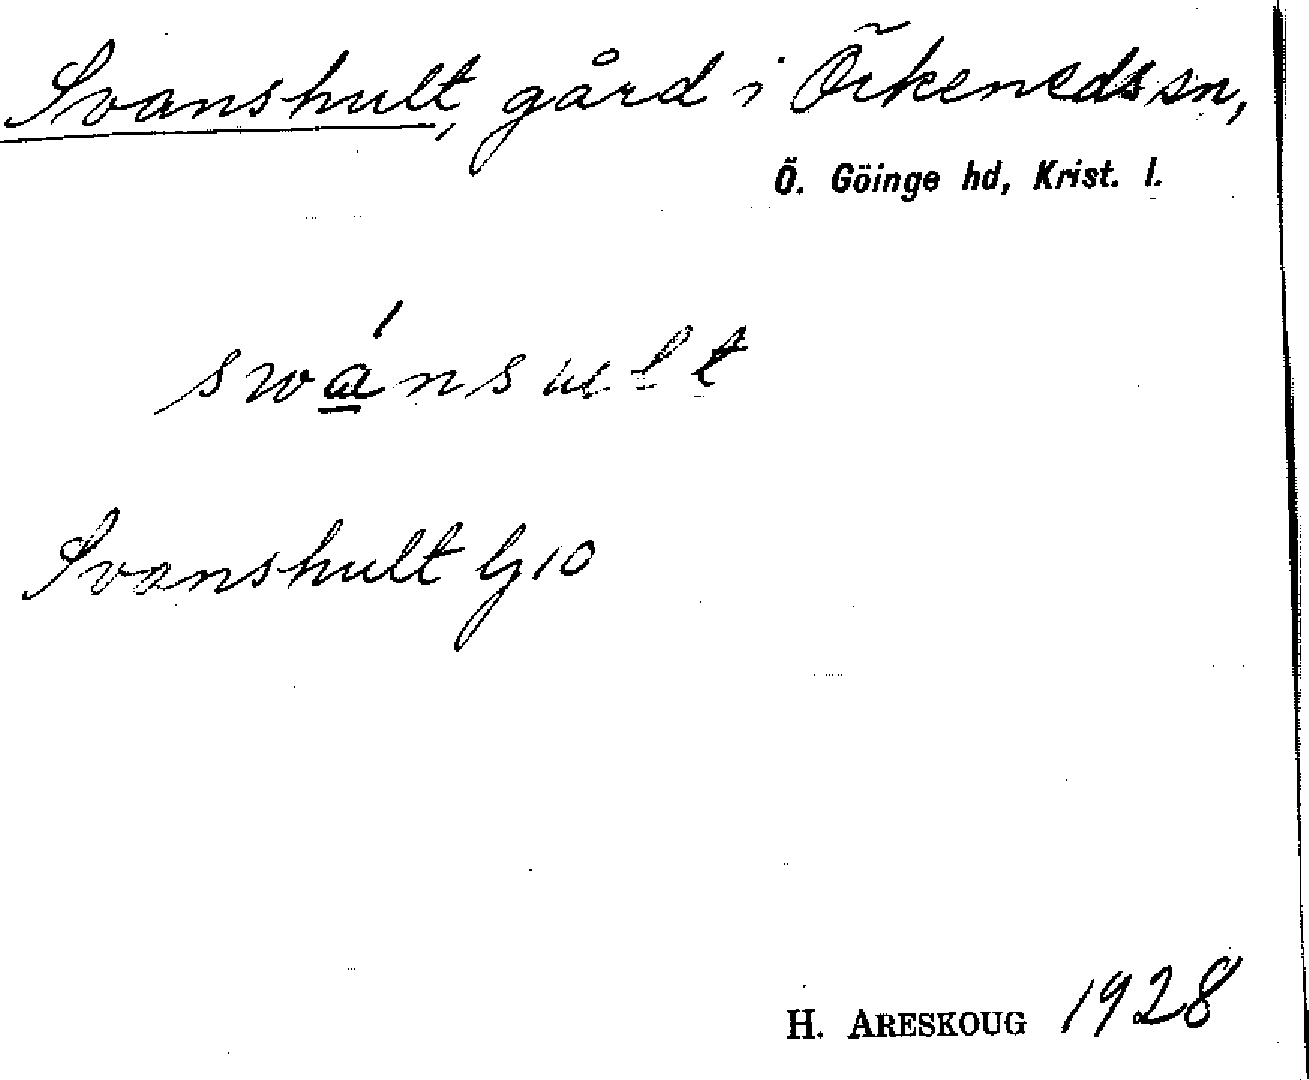 Svanshult, gård i Örkeneds sn,
Ö. Göinge hd, Krist. l.
swánsult
Svanshult Gj10
H. ARESKOUG 1928